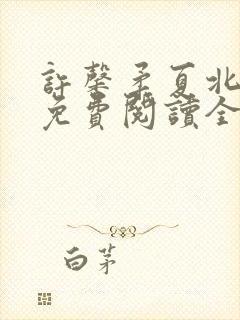 許馨矛夏北
免費閱讀全
白茅